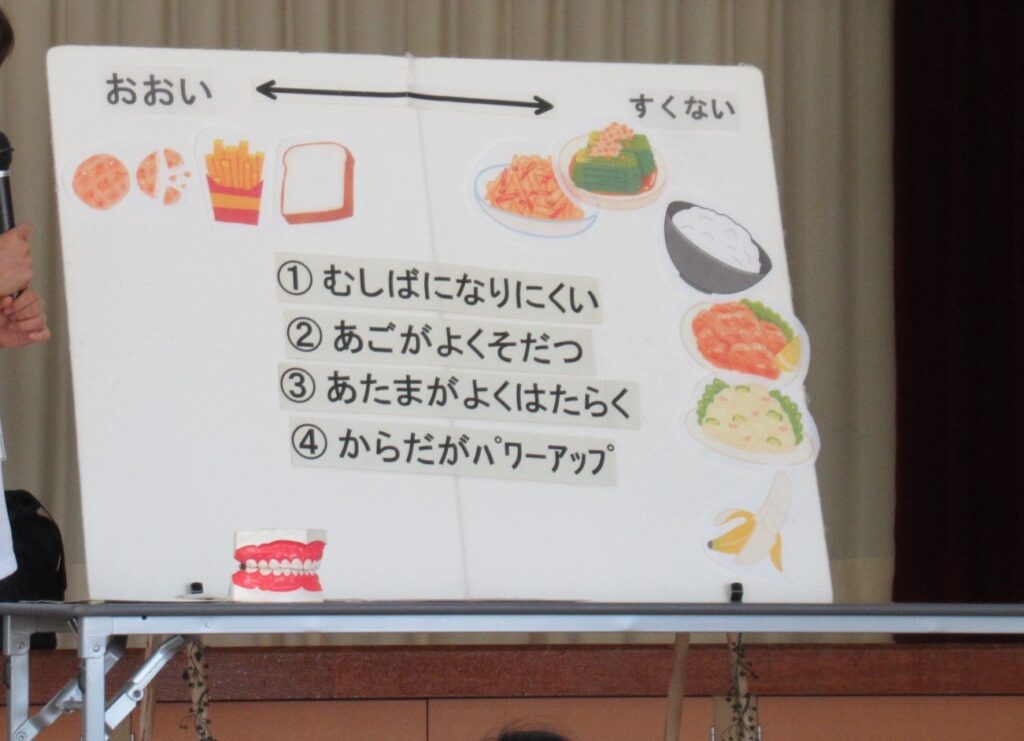 おおい
すくない
① むしばになりにくい
② あごがよくそだつ
③ あたまがよくはたらく
④ からだがﾊﾟﾜｰｱｯﾌﾟ